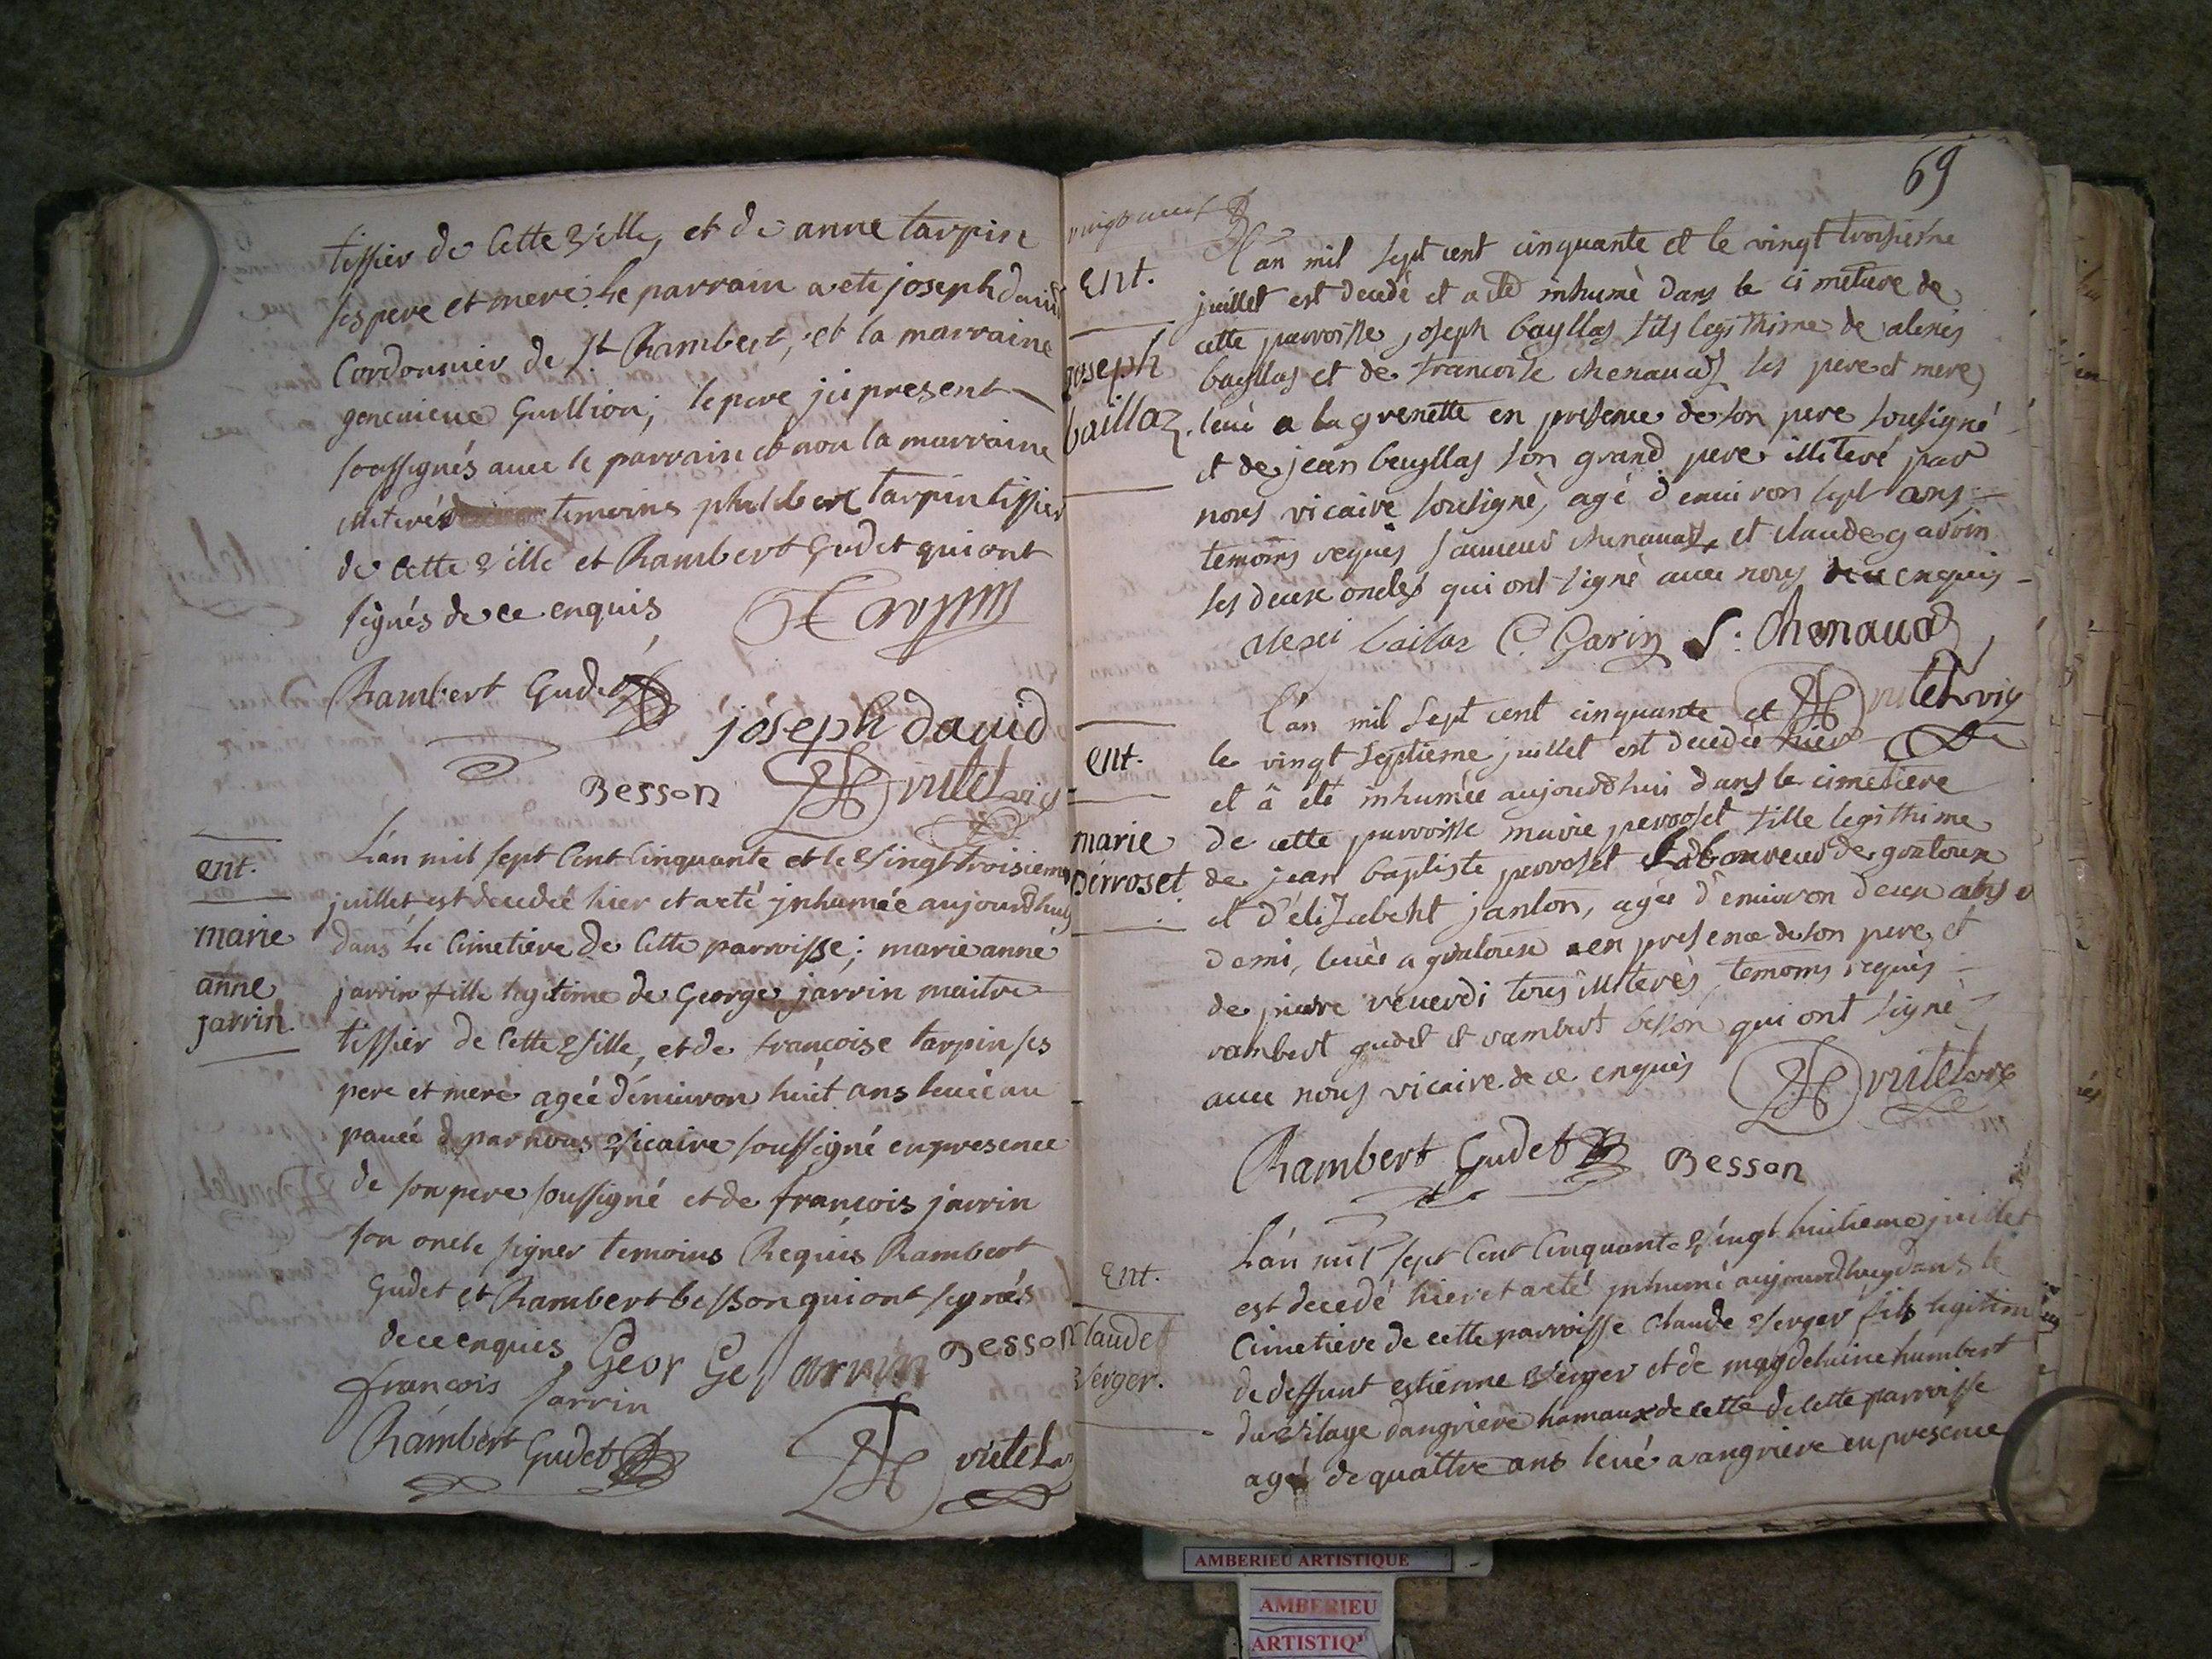 tissier de Cette Ville, et de anne tarpin
ses pere et mere. Le parrain a eté joseph david
Cordonnier de St Rambert, et la marraine
genevieve Guillion; le pere ji present
soussignés avec le parrain et non la marraine
illiterés temoins philibert tarpin tissier
de Cette Ville et Rambert Gudet qui ont
signés de ce enquis
Tarpin
Rambert Gudet
joseph david
Besson
vutet vic
ent.
marie
anne
jarrin
L'an mil sept Cent Cinquante et le Vingt troisieme
juillet est decedée hier et a eté jnhumée aujourdhuy
dans le Cimetiere de Cette parroisse; marie anne
jarrin fille legitime de George jarrin maitre
tissier de Cette Ville, et de francoise tarpin ses
pere et mere agée d'environ huit ans levée au
pavée par nous Vicaire soussigné en presence
de son pere soussigné et de françois jarrin
son oncle signer temoins Requis Rambert
Gudet et Rambert besson qui ont signés
de ce enquis
GeorGe Jarrin
Besson
francois Jarrin
Rambert Gudet
vutet
69
ent.
joseph
baillaz.
L'an mil sept cent cinquante et le vingt troisieme
juillet est decedé et a eté inhumè dans le cimetiere de
cette parroisse joseph bayllas fils legithime de alexis
bayllas et de francoise chenavaz ses pere et mere
levé a la grenette en presence de son pere sousigné
et de jean bayllas son grand pere illiteré par
nous vicaire sousignè, agé d'environ sept ans
temoins requis sauveur chenavaz et claude garin
ses deux oncles qui ont signè avec nous de ce enquis
alexi baillaz C. Garin S. Chenavaz
vutet vic
ent.
marie
perroset
l'an mil sept cent cinquante et
le vingt septieme juillet est decedée hier
et à eté inhumée aujourdhui dans le cimetiere
de cette parroisse marie perroset fille legithime
de jean baptiste perroset laboureur de gratoux
et d'elizabeht janton, agée d'environ deux ans e
demi, levée a gratoux en presence de son pere et
de pierre reverdi tous illiterés, temoins requis
rambert gudet et rambert besson qui ont signé
avec nous vicaire de ce enquis
vutet vic
Rambert Gudet Besson
Ent.
Claude
Verger.
L'an mil sept Cent Cinquante Vingt huitieme juillet
est decedé hier et a eté jnhumé aujourdhuy dans le
Cimetiere de cette parroisse Claude Verger fils legitim
de deffunt estienne Verger et de magdeleine humbert
du Vilage d'angriere hamaux de cette de cette parroisse
agé de quattre ans levé a angriere en presence
AMBERIEU ARTISTIQUE
AMBERIEU
ARTISTIQ